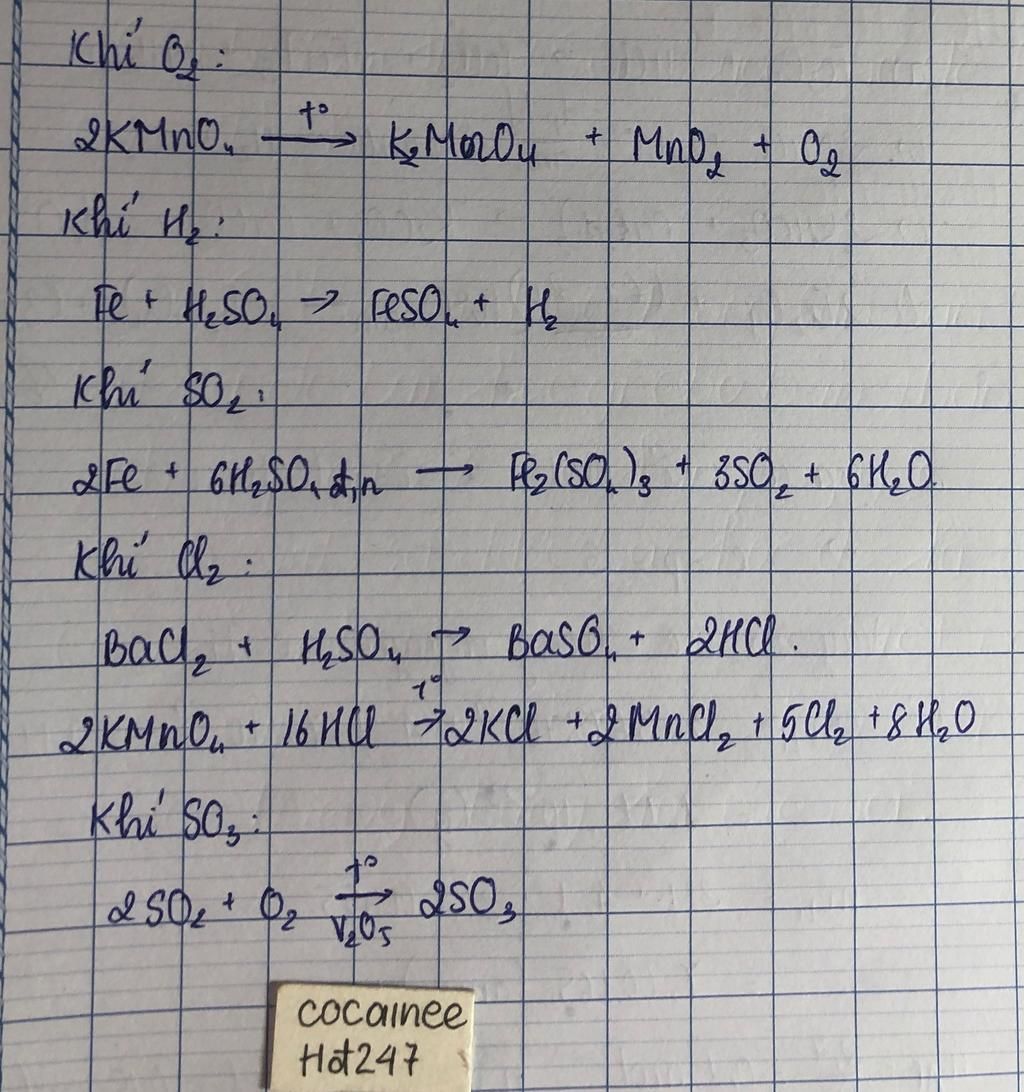 Khí O₂:
2KMnO₄ —t°→ K₂MnO₄ + MnO₂ + O₂
Khí H₂:
Fe + H₂SO₄ → FeSO₄ + H₂
Khí SO₂:
2Fe + 6H₂SO₄ đ,n → Fe₂(SO₄)₃ + 3SO₂ + 6H₂O
Khí Cl₂:
BaCl₂ + H₂SO₄ → BaSO₄ + 2HCl.
2KMnO₄ + 16HCl —t°→ 2KCl + 2MnCl₂ + 5Cl₂ + 8H₂O
Khí SO₃:
2SO₂ + O₂ —t°→ 2SO₃
V₂O₅
cocainee
Hot247